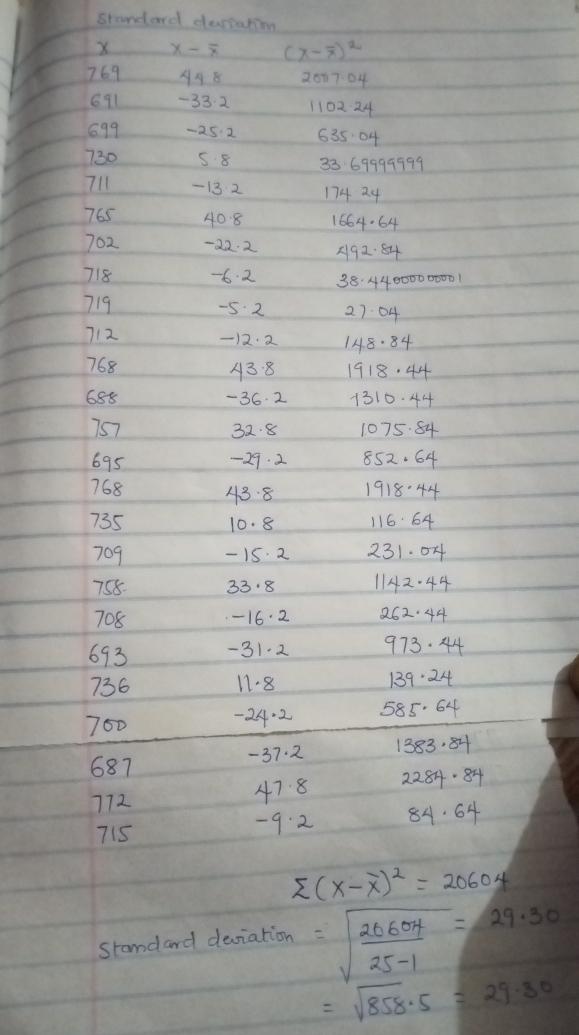 Standard deviation
x x - x̄ (x-x̄)²
769 44.8 2007.04
691 -33.2 1102.24
699 -25.2 635.04
730 5.8 33.69999999
711 -13.2 174.24
765 40.8 1664.64
702 -22.2 492.84
718 -6.2 38.4400000001
719 -5.2 27.04
712 -12.2 148.84
768 43.8 1918.44
688 -36.2 1310.44
757 32.8 1075.84
695 -29.2 852.64
768 43.8 1918.44
735 10.8 116.64
709 -15.2 231.04
758 33.8 1142.44
708 -16.2 262.44
693 -31.2 973.44
736 11.8 139.24
700 -24.2 585.64
687 -37.2 1383.84
772 47.8 2284.84
715 -9.2 84.64
Σ(x-x̄)² = 20604
Standard deviation = √20604/25-1 = 29.30
= √858.5 = 29.30